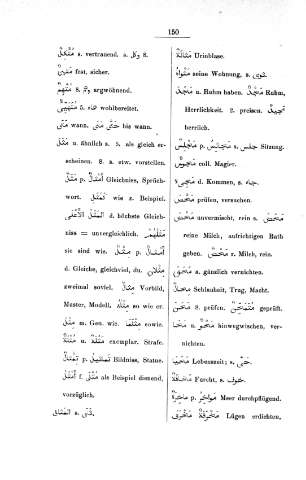 150
مُتَّكِلٌ s. vertrauend. a. وكل 8.
مَتِينٌ fest, sicher.
مُتَّهِمٌ 8. وهم argwöhnend.
wohlbereitet.
مَتَى wann. حَتَّى مَتَى bis wann.
مثل u. ähnlich s. 5. als gleich er-
scheinen. 8. a. etw. vorstellen.
مَثَلٌ p. أَمْثَالٌ Gleichniss, Sprüch-
wort. مَثَلًا wie z. Beispiel.
اَلْمَثَلُ الْأَعْلَى d. höchste Gleich-
niss = unvergleichlich. مَثَلُهُمْ
sie sind wie. مِثْلٌ p. أَمْثَالٌ
d. Gleiche, gleichviel, du. مِثْلَانِ
zweimal soviel. مِثَالٌ Vorbild,
Muster, Modell, مِثْلُهُ so wie er.
مِثْلَ m. Gen. wie. مِثْلَمَا sowie.
مُثْلَةٌ u. مَثُلَةٌ exemplar. Strafe.
تِمْثَالٌ p. تَمَاثِيلُ Bildniss, Statue.
أَمْثَلُ f. مُثْلَى als Beispiel dienend,
vorzüglich.
s. ثنى
مَثَانَةٌ Urinblase.
مَثْوَاهُ seine Wohnung, s. ثوى.
مجد u. Ruhm haben. مَجْدٌ Ruhm,
Herrlichkeit. 2. preisen. مَجِيدٌ
herrlich.
مَجْلِسٌ p. مَجَالِسُ s. جلس Sitzung.
مَجُوسٌ coll. Magier.
مَجِيءٌ d. Kommen, s. جاء.
محص prüfen, versuchen.
محض unvermischt, rein s. مَحْضٌ
reine Milch, aufrichtigen Rath
geben. مَحْضٌ r. Milch, rein.
محق a. gänzlich vernichten.
مِحَالٌ Schlauheit, Trug, Macht.
محن 8. prüfen. مُمْتَحَنٌ geprüft.
محا u. مَحْوٌ hinwegwischen, ver-
nichten.
مَحْيَا Lebenszeit; s. حيى.
مَخَافَةٌ Furcht. s. خوف.
مَاخِرَةٌ p. مَوَاخِرُ Meer durchpflügend.
مَخْرَقَةٌ Lügen erdichten,